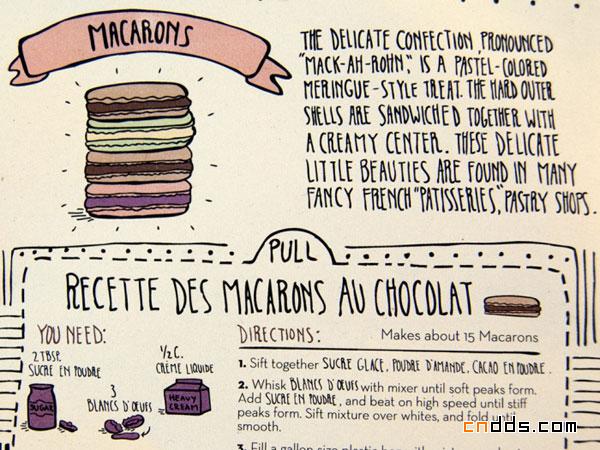 MACARONS
THE DELICATE CONFECTION, PRONOUNCED
"MACK-AH-ROHN," IS A PASTEL-COLORED
MERINGUE-STYLE TREAT. THE HARD OUTER
SHELLS ARE SANDWICHED TOGETHER WITH
A CREAMY CENTER. THESE DELICATE
LITTLE BEAUTIES ARE FOUND IN MANY
FANCY FRENCH "PATISSERIES," PASTRY SHOPS.
PULL
RECETTE DES MACARONS AU CHOCOLAT
YOU NEED:
2 TBSP.
SUCRE EN POUDRE
SUGAR
3
BLANCS D'OEUFS
1/2 C.
CRÈME LIQUIDE
HEAVY
CREAM
DIRECTIONS:
Makes about 15 Macarons
1. Sift together SUCRE GLACE, POUDRE D'AMANDE, CACAO EN POUDRE.
2. Whisk BLANCS D'OEUFS with mixer until soft peaks form.
Add SUCRE EN POUDRE, and beat on high speed until stiff
peaks form. Sift mixture over whites, and fold until
smooth.
3. Fill a gallon size plastic bag with
cndds.com